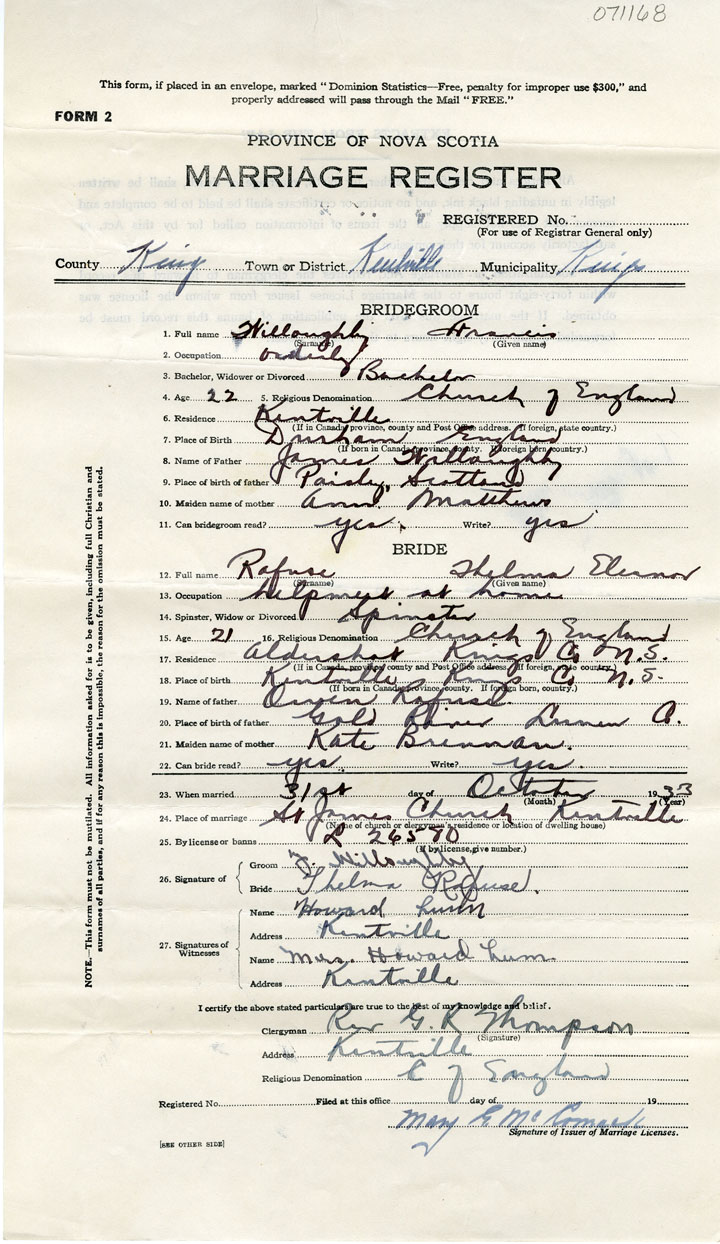 071168
This form, if placed in an envelope, marked "Dominion Statistics—Free, penalty for improper use $300," and
properly addressed will pass through the Mail "FREE."
FORM 2
PROVINCE OF NOVA SCOTIA
MARRIAGE REGISTER
REGISTERED No.
(For use of Registrar General only)
County King Town or District Kentville Municipality Kings
BRIDEGROOM
1. Full name Willoughby Francis
(Surname) (Given name)
2. Occupation orderly
3. Bachelor, Widower or Divorced Bachelor
4. Age 22 5. Religious Denomination Church of England
6. Residence Kentville
(If in Canada, province, county and Post Office address. If foreign, state country.)
7. Place of Birth Durham England
(If born in Canada, province, county. If foreign born, country.)
8. Name of Father James Willoughby
9. Place of birth of father Paisley, Scotland
10. Maiden name of mother Ann Matthews
11. Can bridegroom read? yes. Write? yes
BRIDE
12. Full name Rafuse Thelma Eleanor
(Surname) (Given name)
13. Occupation helpmeet at home
14. Spinster, Widow or Divorced Spinster
15. Age 21 16. Religious Denomination Church of England
17. Residence Aldershot Kings Co N.S.
(If in Canada, province, county and Post Office address. If foreign, state country.)
18. Place of birth Kentville Kings Co N.S.
(If born in Canada, province, county. If foreign born, country.)
19. Name of father Owen Rafuse.
20. Place of birth of father Gold River Lunen Co.
21. Maiden name of mother Kate Brennan.
22. Can bride read? yes. Write? yes.
23. When married 31st day of October 1933
(Month) (Year)
24. Place of marriage St James Church Kentville
(Name of church or clergyman's residence or location of dwelling house)
25. By license or banns L 26580
(If by license, give number.)
26. Signature of
Groom F. Willoughby
Bride Thelma Rafuse.
27. Signatures of Witnesses
Name Howard Lum
Address Kentville
Name Mrs. Howard Lum
Address Kentville
I certify the above stated particulars are true to the best of my knowledge and belief.
Clergyman Rev G. R Thompson
(Signature)
Address Kentville
Religious Denomination C of England
Registered No. Filed at this office day of 19
Mary E McCormack
Signature of Issuer of Marriage Licenses.
[SEE OTHER SIDE]
NOTE.—This form must not be mutilated. All information asked for is to be given, including full Christian and
surnames of all parties, and if for any reason this is impossible, the reason for the omission must be stated.